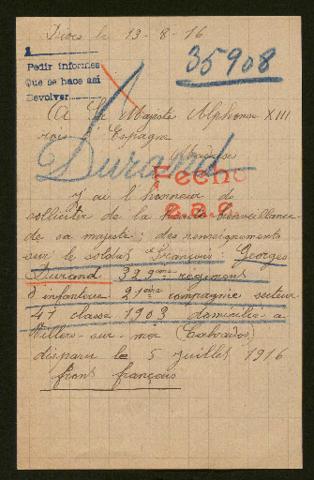 Dives le 13-8-16
1
Pedir informes
Que se hace así
Devolver
35908
A Sa Majesté Alphonse XIII
roi d'Espagne
Durand
Madrid
Fecho
J'ai l'honneur de
solliciter de la haute bienveillance
de sa majesté; des renseignements
sur le soldat Français Georges
Durand 329ème régiment
d'infanterie 21ème compagnie secteur
47 classe 1903 domicilié à
Villers-sur-mer (Calvados)
disparu le 5 juillet 1916
front français